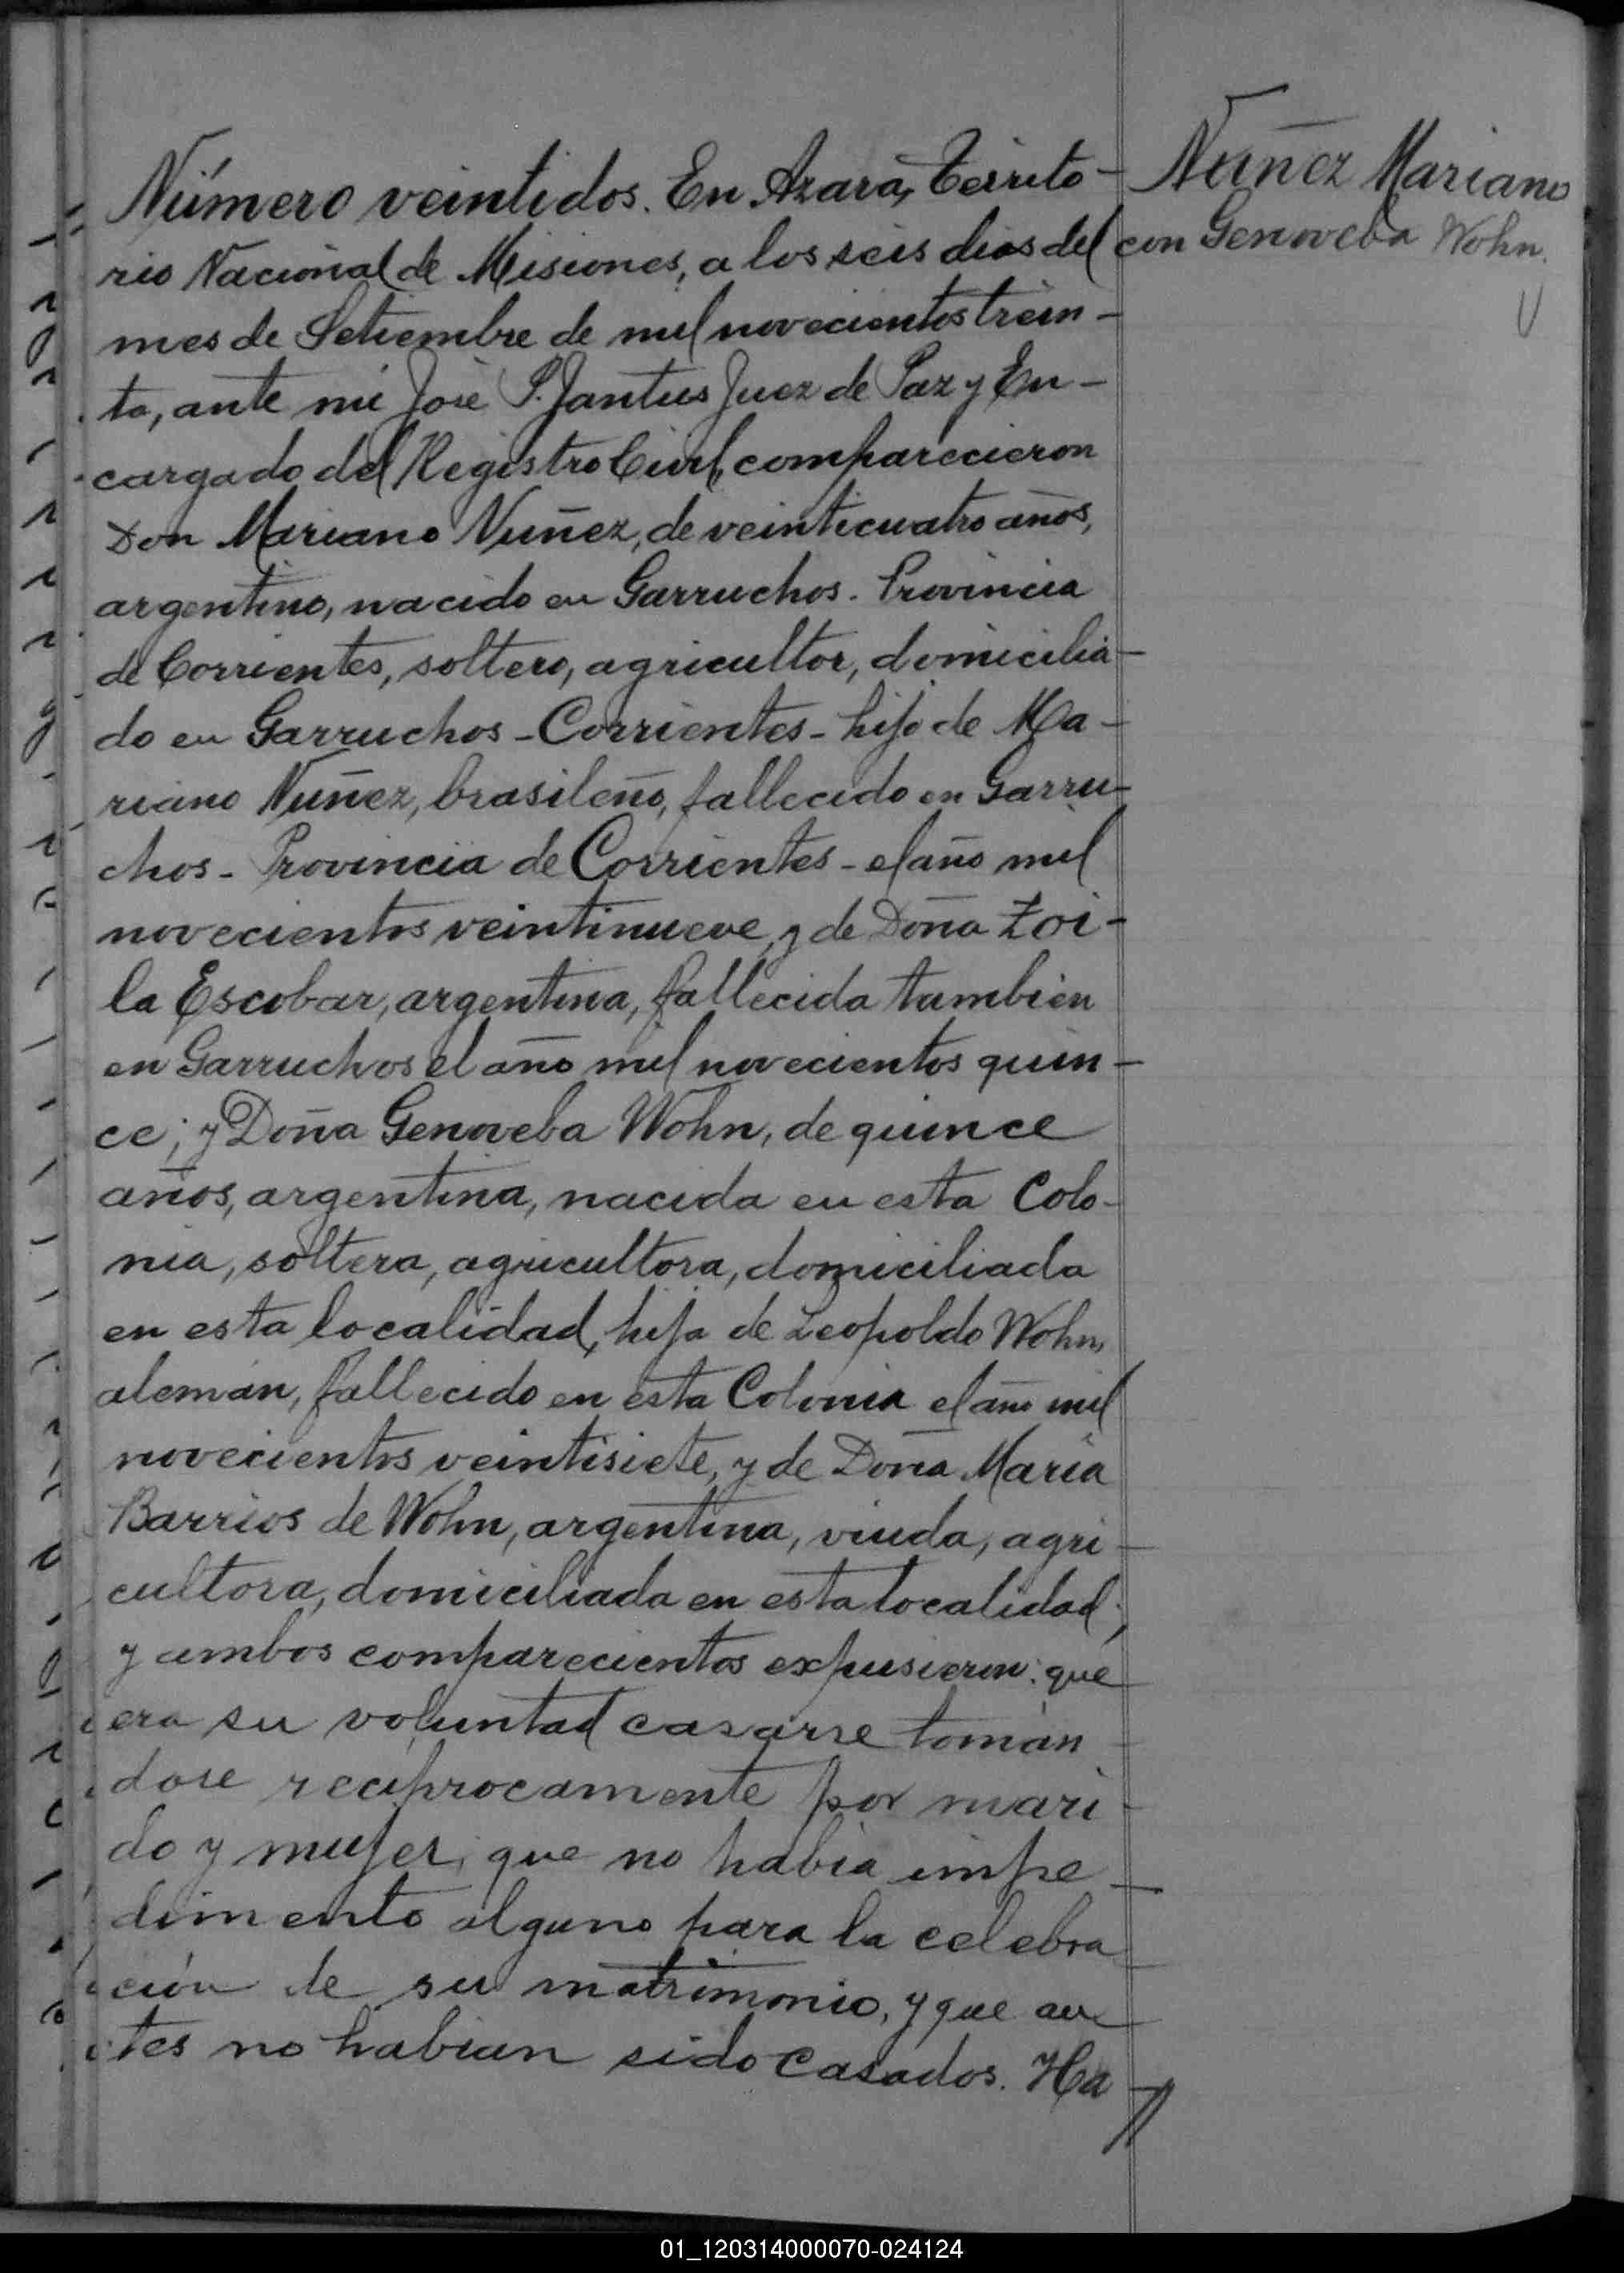 Número veintidos. En Azara, Territo-
rio Nacional de Misiones, a los seis dias del
mes de Setiembre de mil novecientos trein-
ta, ante mi José P. Jantus Juez de Paz y En-
cargado del Registro Civil, comparecieron
Don Mariano Nuñez, de veinticuatro años,
argentino, nacido en Garruchos. Provincia
de Corrientes, soltero, agricultor, domicilia-
do en Garruchos - Corrientes - hijo de Ma-
riano Nuñez, brasileño, fallecido en Garru-
chos - Provincia de Corrientes - el año mil
novecientos veintinueve, y de Doña Zoi-
la Escobar, argentina, fallecida tambien
en Garruchos el año mil novecientos quin-
ce; y Doña Genoveba Wohn, de quince
años, argentina, nacida en esta Colo-
nia, soltera, agricultora, domiciliada
en esta localidad, hija de Leopoldo Wohn,
alemán, fallecido en esta Colonia el año mil
novecientos veintisiete, y de Doña Maria
Barrios de Wohn, argentina, viuda, agri-
cultora, domiciliada en esta localidad;
y ambos comparecientos expusieron: que
era su voluntad casarse tomán
dose reciprocamente por mari-
do y mujer, que no habia impe-
dimento alguno para la celebra
ción de su matrimonio, y que an-
tes no habian sido casados. Ha
Nuñez Mariano
con Genoveba Wohn.
01_120314000070-024124